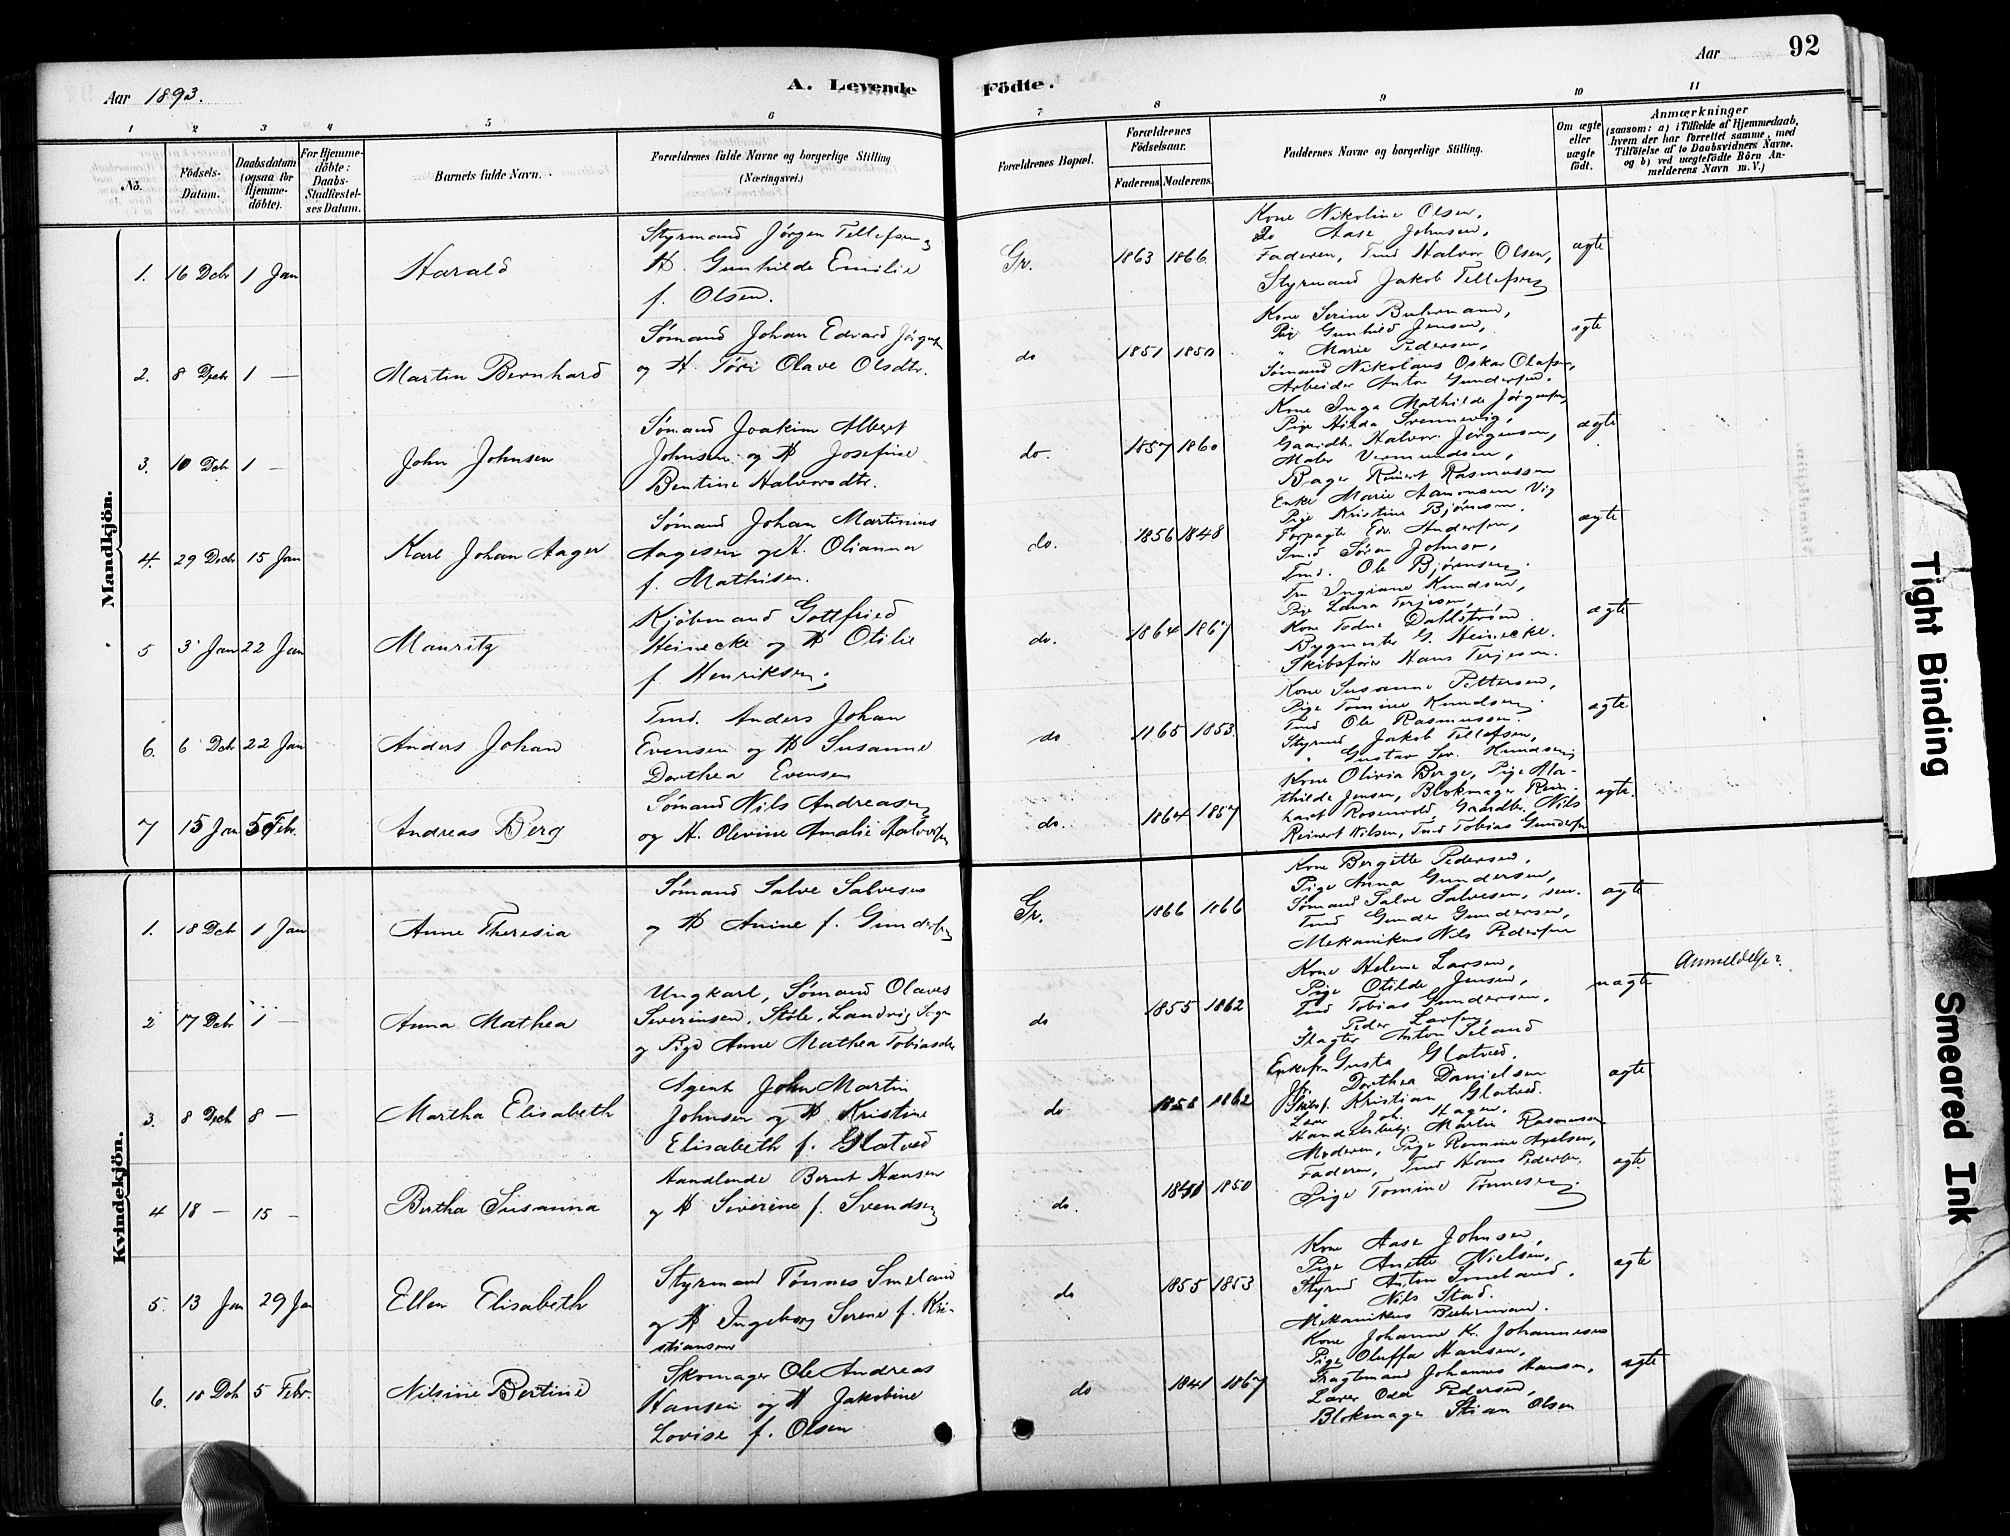 Aar 1893.
A. Levende
Födte.
Aar
92
1
2
3
4
5
6
7
8
9
10
11
No.
Födsels-
Datum.
Daabsdatum
(ogsaa for
Hjemme-
döbte).
For Hjemme-
döbte:
Daabs-
Stadfæstel-
ses Datum.
Barnets fulde Navn.
Forældrenes fulde Navne og borgerlige Stilling
(Næringsvei.)
Forældrenes Bopæl.
Forældrenes
Födselsaar.
Faderens.
Moderens.
Faddernes Navne og borgerlige Stilling.
Om ægte
eller
uægte
födt.
Anmærkninger
(saasom: a) i Tilfælde af Hjemmedaab,
hvem der har forrettet samme, med
Tilföielse af to Daabsvidners Navne.
og b) ved uægtefödte Börn An-
melderens Navn m.V.)
Mandkjön.
1. 16 Decbr 1 Jan
Harald
Styrmand Jörgen Tellefsen
H. Gunhilde Emilie
f. Olsen.
Gr.
1863 1866.
Kone Nikoline Olsen,
Do Aase Johnsen,
Faderen, Tmd Halvor Olsen,
Styrmand Jakob Tellefsen
ægte
2. 8 Decbr 1 —
Martin Bernhard
Sømand Johan Edvard Jörgensen
og H. Töri Olave Olsdtr.
do
1851 1850
Kone Serine Buhrmann,
Pige Gunhild Jensen,
" Marie Pedersen,
Sømand Nikolaus Oskar Olafsen,
Arbeider Anton Gundersen.
ægte
3. 10 Dcbr 1 —
John Johnsen
Sømand Joakim Albert
Johnsen og H Josefine
Bentine Halvorsdtr.
do.
1857 1860
Kone Inga Mathilde Jörgensen,
Pige Hilda Svennevig,
Gaardbr. Halvor Jörgensen,
Maler Vermundsen,
Bager Reinert Rasmussen
ægte
4. 29 Decbr 15 Jan
Karl Johan Aager
Sømand Johan Martinius
Aagesen og H. Olianna
f. Mathisen.
do.
1856 1848
Enke Marie Aamonsen Vig
Pige Kristine Björnsen.
Forpagter Edv. Andersen,
Smed Søren Johnsen,
Tmd. Ole Björnsen.
ægte
5 3 Jan 22 Jan
Mauritz
Kjöbmand Gottfried
Heinecke og H Otilie
f. Henriksen,
do.
1864 1867
Fru Ingiane Knudsen,
Pige Laura Terjesen,
Kone Todne Dahlström
Bygmester G. Heinecke.
Skibsfører Hans Terjesen.
ægte
6. 6 Dcbr 22 Jan
Anders Johan
Tmd. Anders Johan
Evensen og H Susanne
Dorthea Evensen
do
1165 1853.
Kone Susanne Pettersen,
Pige Tomine Knudsen.
Tmd Ole Rasmussen.
Styrmd Jakob Tellefsen,
" Gustav Knudsen
ægte
7 15 Jan 5 Febr.
Andreas Berg
Sømand Nils Andreasen
og H. Olevine Amalie Halvorsen
do.
1864 1857
Kone Olivia Berge, Pige Ma-
thilde Jensen, Blokmager Rein-
hart Rosenvold, Gaardbr. Nils
Reinert Nilsen, Tmd Tobias Gundersen
ægte.
Kvindekjön.
1. 18 Dcbr 1 Jan
Anne Theresia
Sømand Salve Salvesen
og H Anine f. Gundersen
Gr.
1866 1866
Kone Bergitte Pedersen,
Pige Anna Gundersen,
Sømand Salve Salvesen, sen.
Tmd Gunder Gundersen,
Mekanikus Nils Pedersen
ægte
2 17 Dcbr 1 —
Anna Mathea
Ungkarl, Sømand Olaves
Severinsen, Støle, Landvig Sogn
og Pige Anne Mathea Tobiasdtr
do
1855 1862
Kone Helene Larsen,
Pige Otilde Jensen,
Tmd Tobias Gundersen,
" Peder Larsen,
Slagter Anton Seland
uægte
Anmeldelse?
3. 8 Decbr 8 —
Martha Elisabeth
Agent John Martin
Johnsen og H Kristine
Elisabeth f. Glatved
do
1858 1862
Enkefru Gusta Glatved.
Dorthea Danielsen
Skibsf. Kristian Glatved.
Lærer Joh. Hagen.
Handelsbetj. Martin Rasmussen
ægte
4 18 — 15 —
Bertha Susanna
Handlende Bernt Hansen
og H Severine f. Svendsen
do.
1850
Moderen, Pige Romine Axelsen,
Faderen, Tmd Hans Pedersen,
Pige Tomine Tønnesen.
ægte
5. 13 Jan 29 Jan
Ellen Elisabeth
Styrmand Tønnes Smeland
og H Ingeborg Serene f. Kri-
stiansen
do
1855 1853
Kone Aase Johnsen,
Pige Anette Nielsen,
Styrmd Anton Smeland,
" Nils Stad.
Mekanikus Buhrman.
ægte
6. 15 Dcbr 5 Febr.
Nilsine Bertine
Skomager Ole Andreas
Hansen og H Jakobine
Lovise f. Olsen
do
1841 1867
Kone Johanne K. Johannesen
Pige Oluffa Hansen,
Fragtemand Johannes Hansen,
Lærer Oder Pedersen,
Blokmager Stian Olsen
ægte
Tight Binding
Smeared Ink